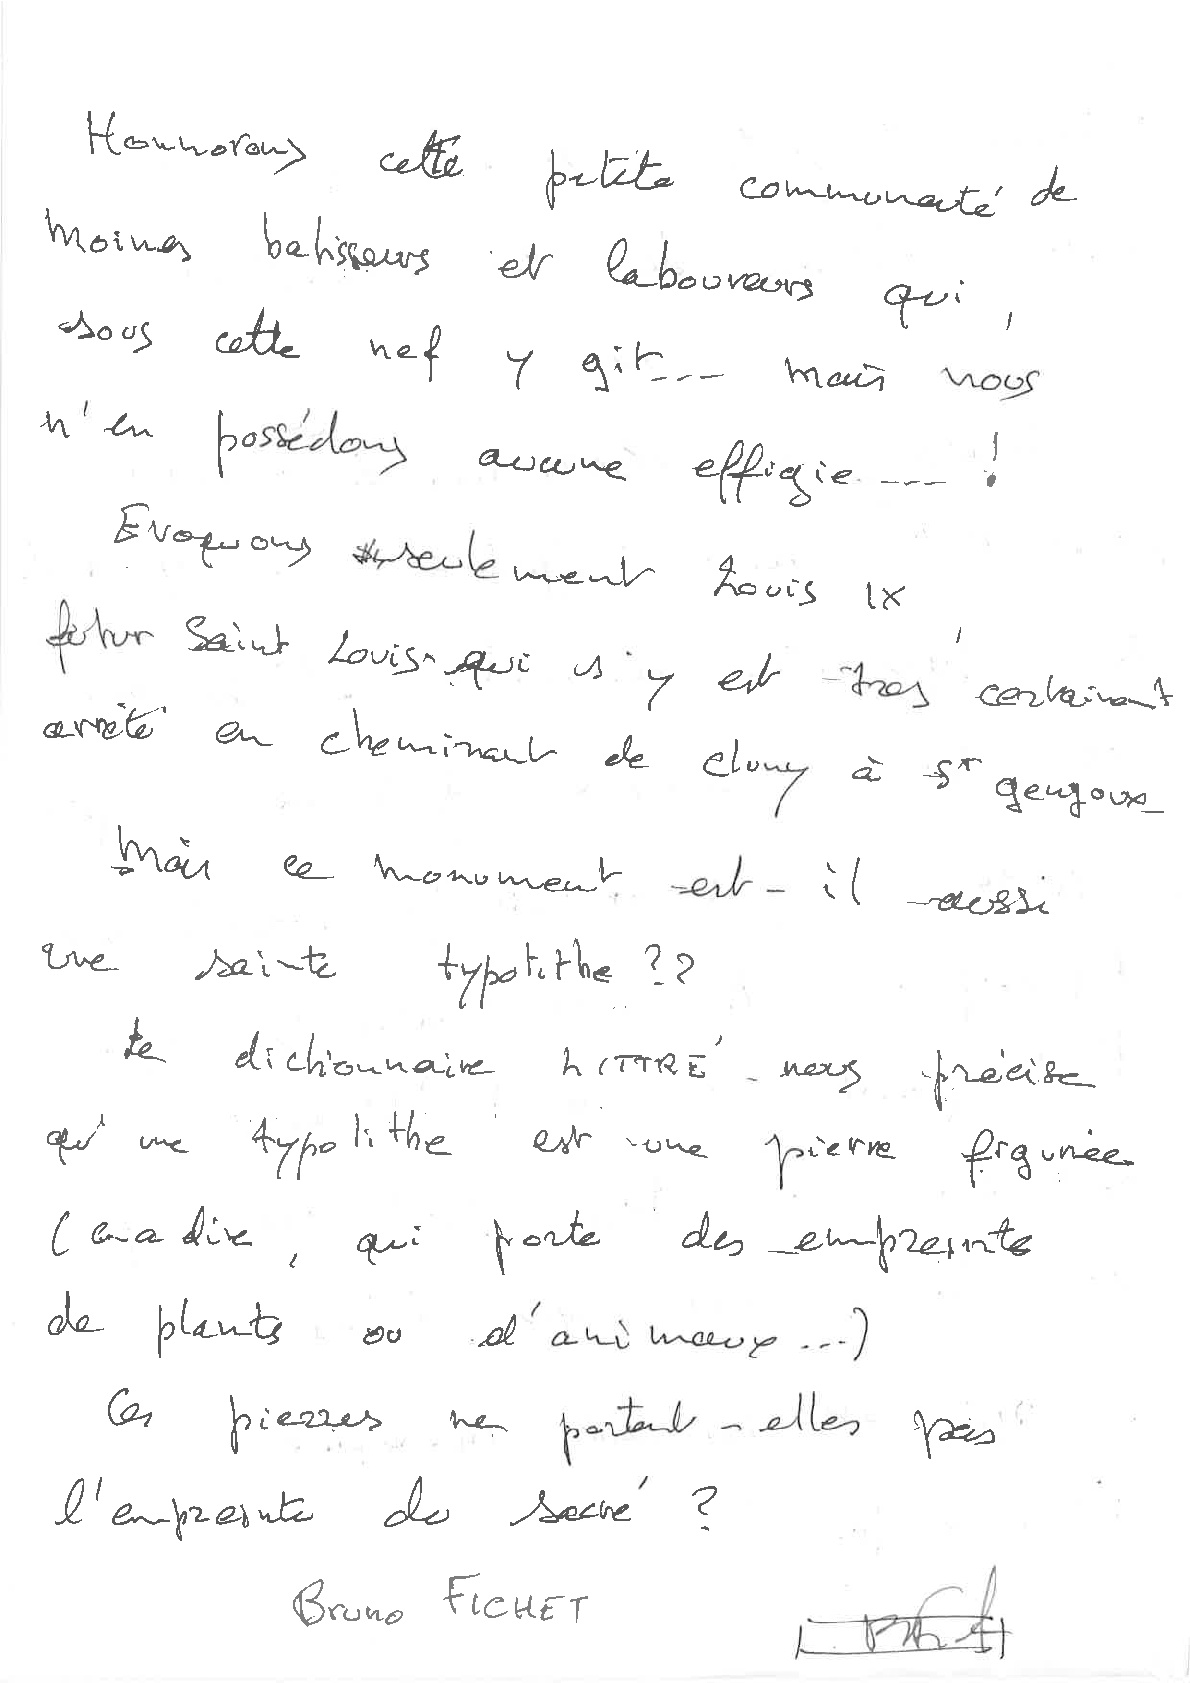 Honnorons cette petite communauté de
moines batisseurs et laboureurs qui,
sous cette nef y git--- mais nous
n'en possédons aucune effigie --- !
Evoquons seulement Louis IX,
futur Saint Louis qui s'y est très certainemt
arrêté en cheminant de cluny à St gengoux
Mais ce monument est-il aussi
une sainte typolithe??
Le dictionnaire LITTRÉ nous précise
qu'une typolithe est une pierre figurée
( a dire, qui porte des empreinte
de plants ou d'animaux...)
Ces pierres ne portent-elles pas
l'empreinte du sacré ?
Bruno FICHET